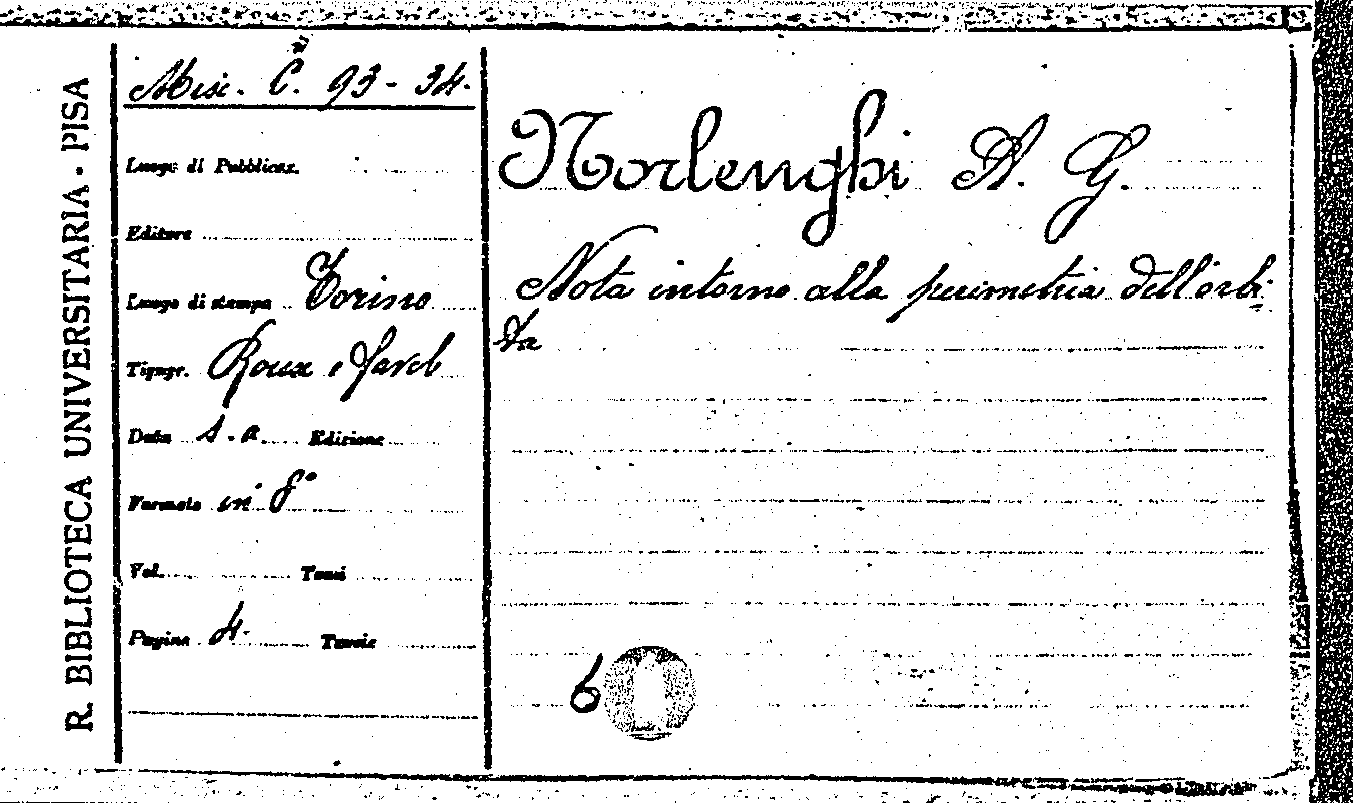 R. BIBLIOTECA UNIVERSITARIA - PISA
Misc. C. 93 - 34.
Luogo di Pubblicaz.
Editore
Luogo di stampa Torino
Tipogr. Roux e Favel
Data s. a. Edizione
Formato in 8°
Vol. Tomi
Pagine 4. Tavole
Norlenghi A. G.
Nota intorno alla perimetria dell'orbi-
ta
6